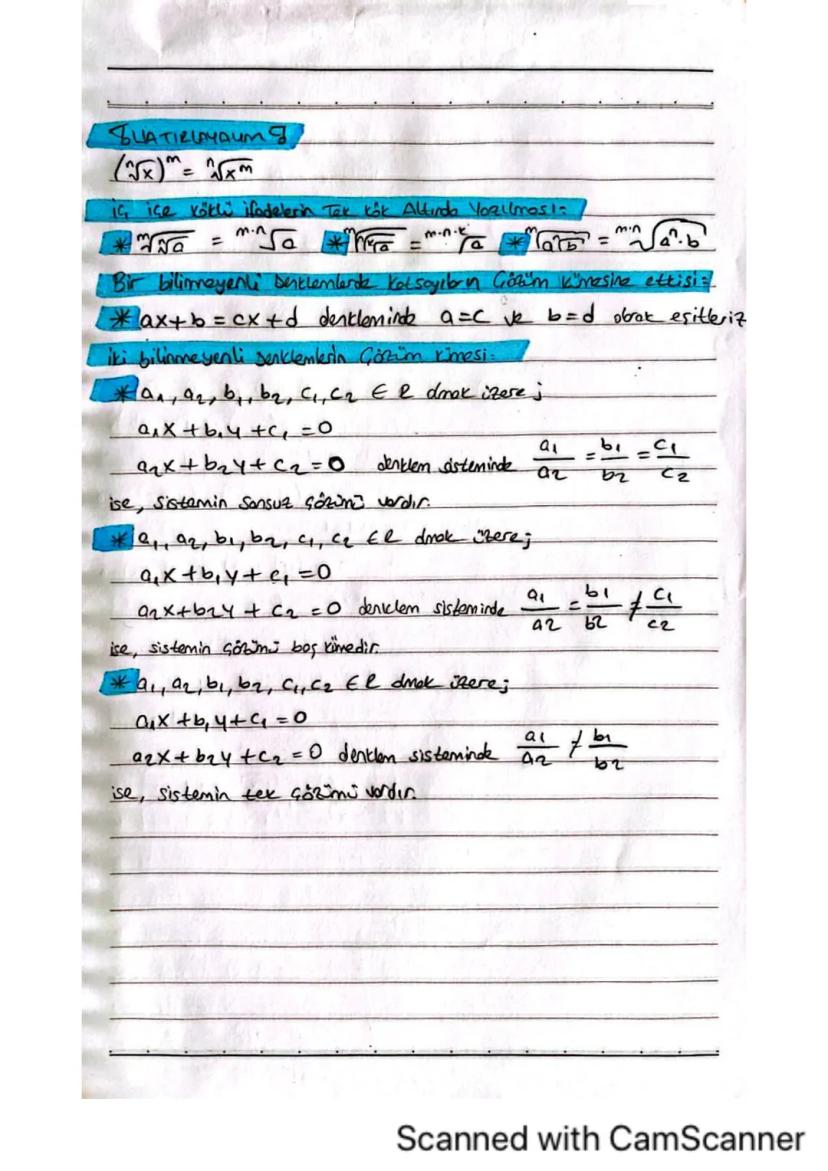 (ⁿ√x)ᵐ = ⁿ√xᵐ
İç içe köklü ifadelerin Tek kök Altında Yazılması:
* ᵐ√ⁿ√a = ᵐ·ⁿ√a * ᵐ√ⁿ√ᵏ√a = ᵐ·ⁿ·ᵏ√a * ᵐ√a ⁿ√b = ᵐ·ⁿ√aⁿ·b
Bir bilinmeyenli Denklemlerde Katsayıların Çözüm kümesine etkisi:
* ax+b = cx+d denkleminde a=c ve b=d olarak eşitleriz
iki bilinmeyenli Denklemlerin Çözüm Kümesi:
* a₁, a₂, b₁, b₂, c₁, c₂ ∈ R olmak üzere;
a₁x + b₁y + c₁ = 0
a₂x + b₂y + c₂ = 0 denklem sisteminde a₁/a₂ = b₁/b₂ = c₁/c₂
ise, sistemin sonsuz çözümü vardır.
* a₁, a₂, b₁, b₂, c₁, c₂ ∈ R olmak üzere;
a₁x + b₁y + c₁ = 0
a₂x + b₂y + c₂ = 0 denklem sisteminde a₁/a₂ = b₁/b₂ ≠ c₁/c₂
ise, sistemin çözümü boş kümedir.
* a₁, a₂, b₁, b₂, c₁, c₂ ∈ R olmak üzere;
a₁x + b₁y + c₁ = 0
a₂x + b₂y + c₂ = 0 denklem sisteminde a₁/a₂ ≠ b₁/b₂
ise, sistemin tek çözümü vardır.
Scanned with CamScanner